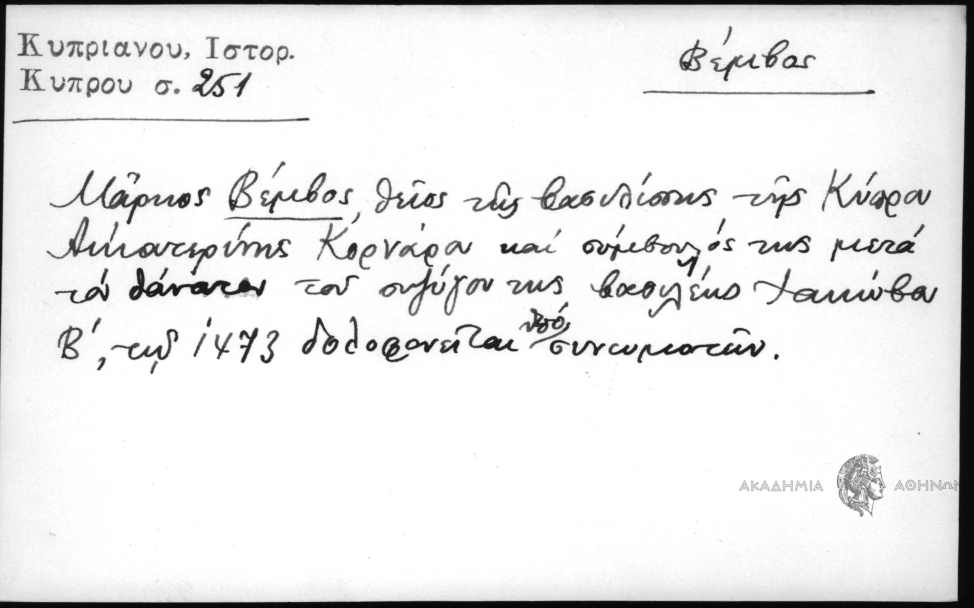 Κυπριανου, Ιστορ.
Κυπρου σ. 251
Βέμβος
Μᾶρκος Βέμβος, θεῖος τῆς βασιλίσσης τῆς Κύπρου
Αἰκατερίνης Κορνάρου καί σύμβουλός της μετά
τόν θάνατον τοῦ συζύγου της βασιλέως Ἰακώβου
Β΄, τῷ 1473 δολοφονεῖται ὑπό συνωμοτῶν.
ΑΚΑΔΗΜΙΑ ΑΘΗΝΩΝ